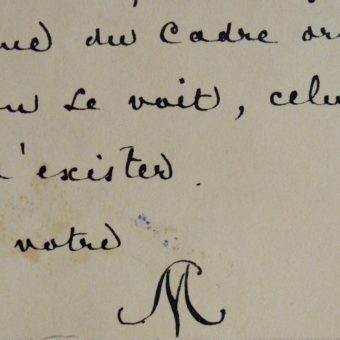 du Cadre
le voit, celu
d'exister.
votre
M